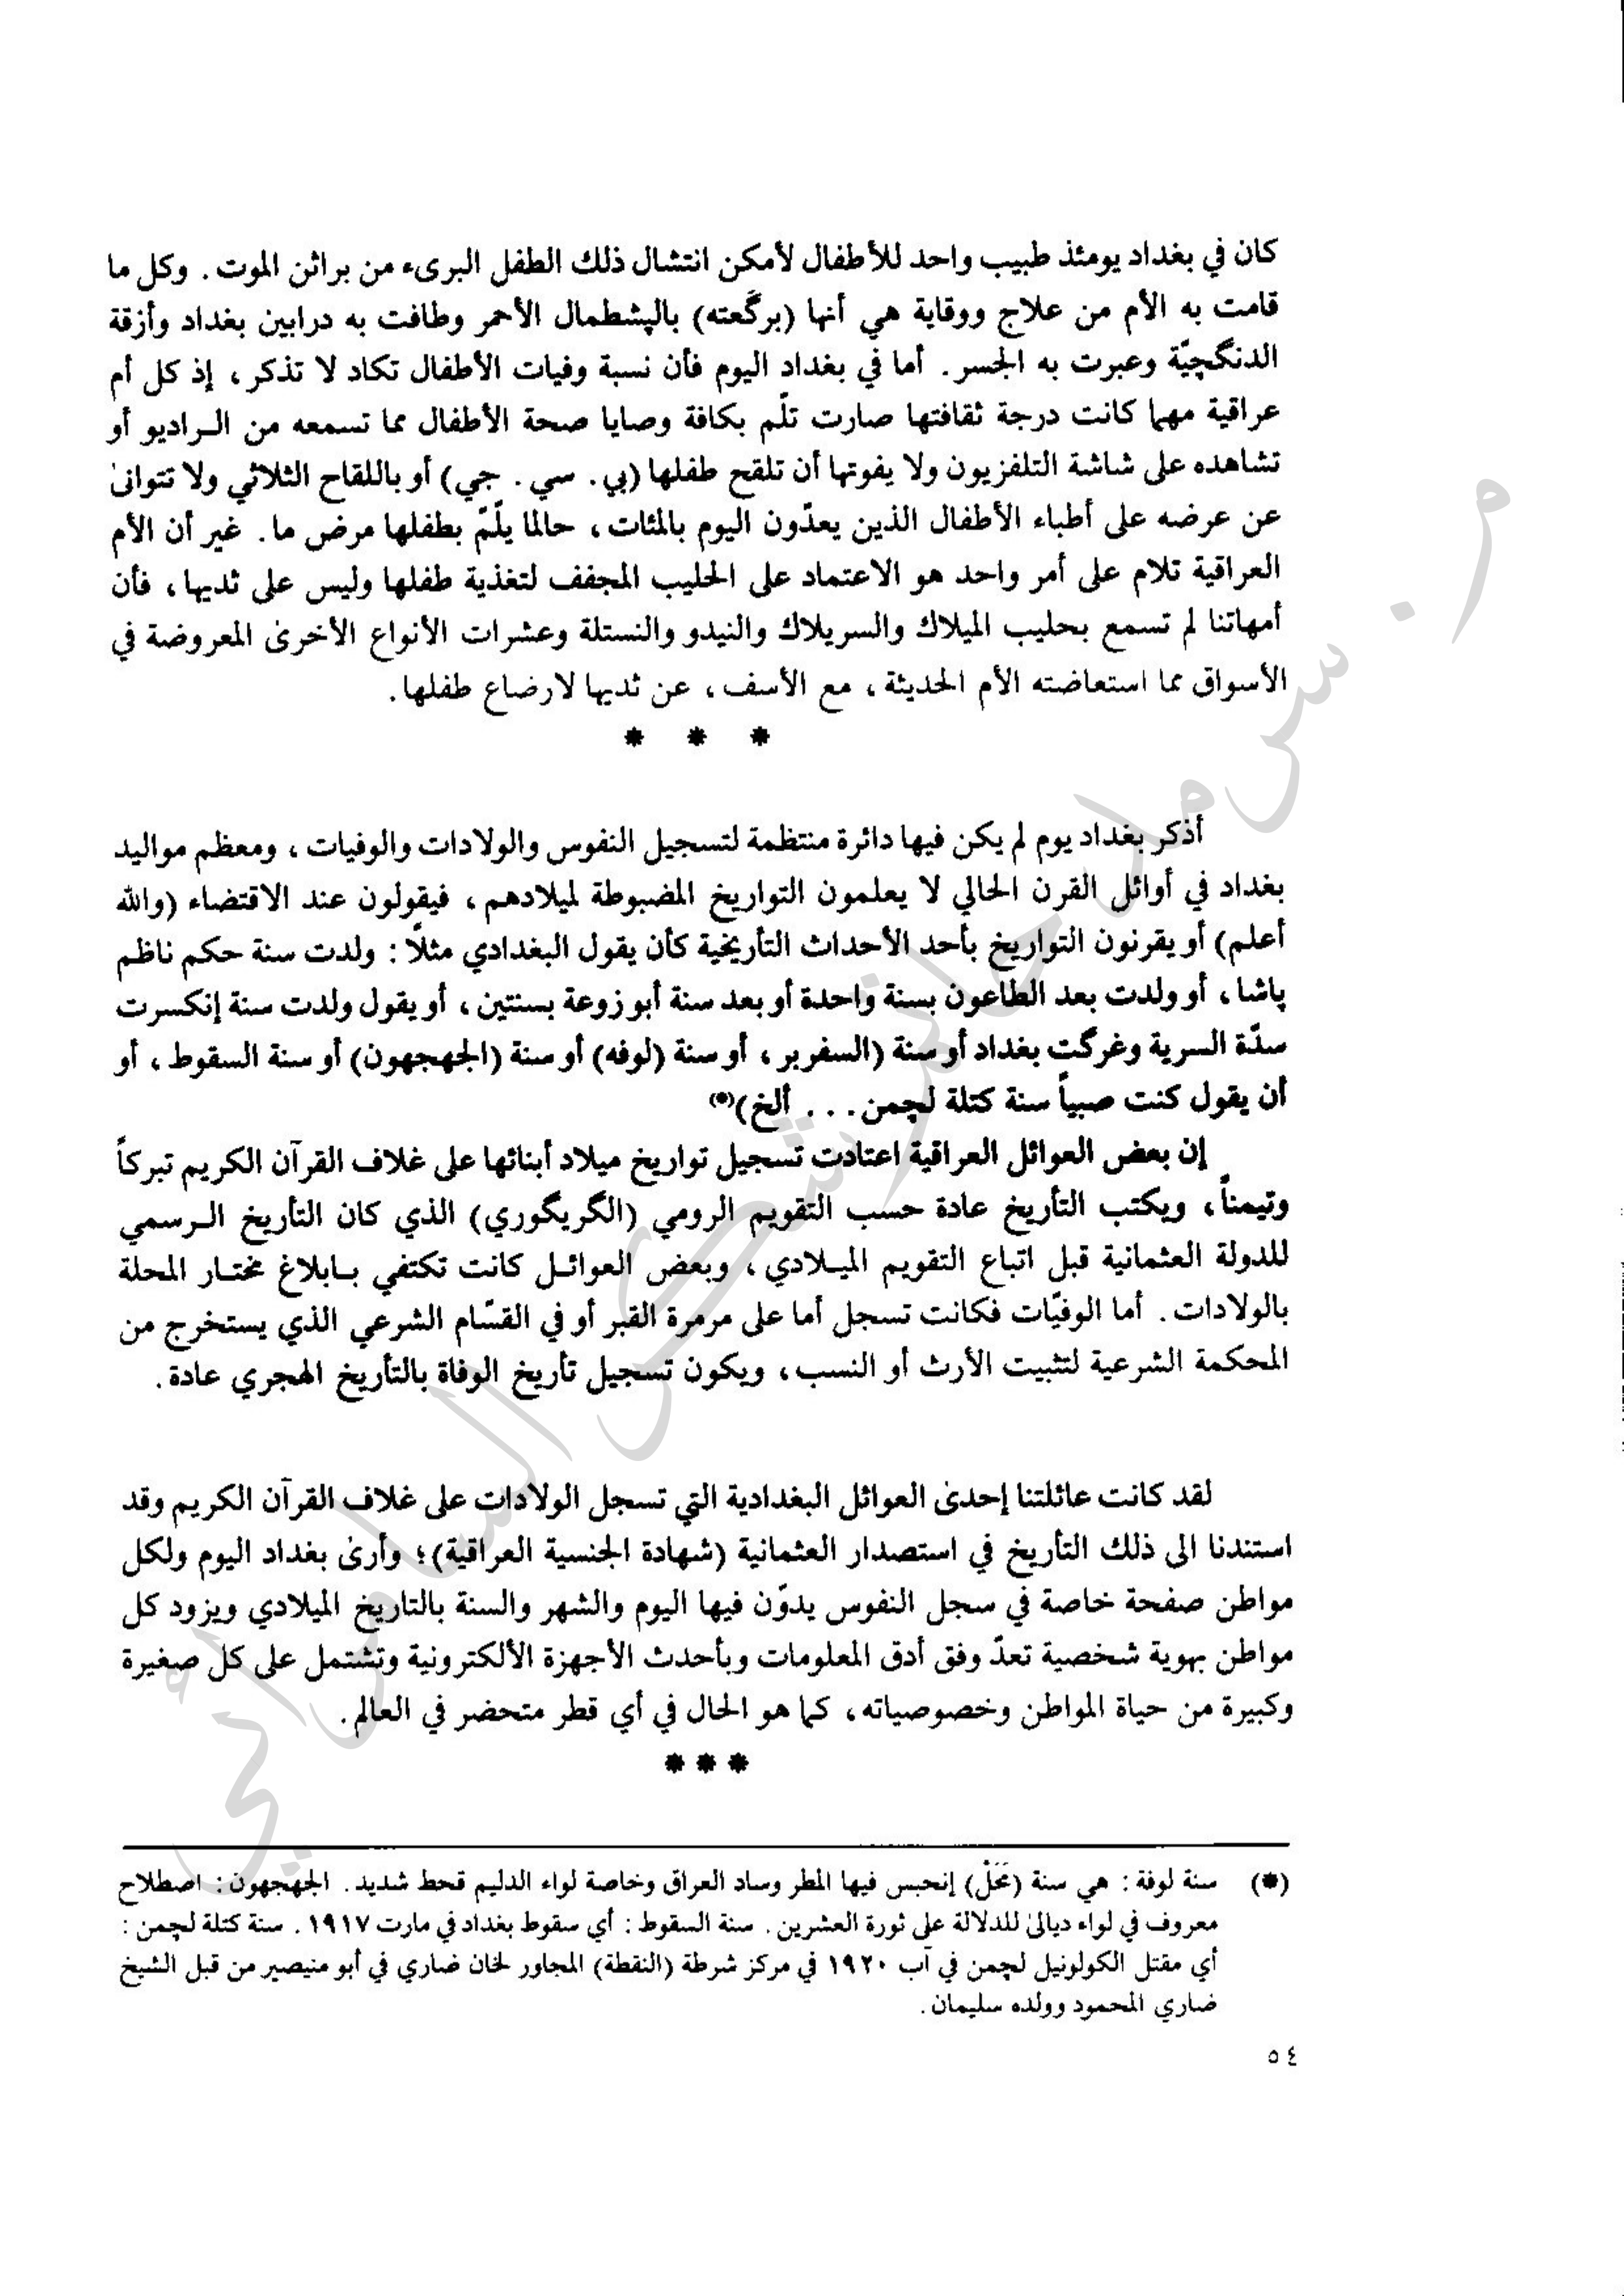 كان في بغداد يومئذ طبيب واحد للأطفال لأمكن انتشال ذلك الطفل البرىء من براثن الموت. وكل ما
قامت به الأم من علاج ووقاية هي أنها (برگعته) بالپشطمال الأحمر وطافت به درابين بغداد وأزقة
الدنگچيّة وعبرت به الجسر. أما في بغداد اليوم فأن نسبة وفيات الأطفال تكاد لا تذكر، إذ كل أم
عراقية مهما كانت درجة ثقافتها صارت تلّم بكافة وصايا صحة الأطفال مما تسمعه من الـراديو أو
تشاهده على شاشة التلفزيون ولا يفوتها أن تلقح طفلها (بي. سي. جي) أو باللقاح الثلاثي ولا تتوانىٰ
عن عرضه على أطباء الأطفال الذين يعدّون اليوم بالمئات، حالما يلّمّ بطفلها مرض ما. غير أن الأم
العراقية تلام على أمر واحد هو الاعتماد على الحليب المجفف لتغذية طفلها وليس على ثديها، فأن
أمهاتنا لم تسمع بحليب الميلاك والسريلاك والنيدو والنستلة وعشرات الأنواع الأخرىٰ المعروضة في
الأسواق مما استعاضته الأم الحديثة، مع الأسف، عن ثديها لارضاع طفلها.
* * *
أذكر بغداد يوم لم يكن فيها دائرة منتظمة لتسجيل النفوس والولادات والوفيات، ومعظم مواليد
بغداد في أوائل القرن الحالي لا يعلمون التواريخ المضبوطة لميلادهم، فيقولون عند الاقتضاء (والله
أعلم) أو يقرنون التواريخ بأحد الأحداث التأريخية كأن يقول البغدادي مثلاً: ولدت سنة حكم ناظم
پاشا، أو ولدت بعد الطاعون بسنة واحدة أو بعد سنة أبو زوعة بسنتين، أو يقول ولدت سنة إنكسرت
سدّة السرية وغرگت بغداد أو سنة (السفربر، أو سنة (لوفه) أو سنة (الجهجهون) أو سنة السقوط، أو
أن يقول كنت صبياً سنة كتلة لچمن... ألخ)(*)
إن بعض العوائل العراقية اعتادت تسجيل تواريخ ميلاد أبنائها على غلاف القرآن الكريم تبركاً
وتيمناً، ويكتب التأريخ عادة حسب التقويم الرومي (الگريگوري) الذي كان التأريخ الـرسمي
للدولة العثمانية قبل اتباع التقويم الميـلادي، وبعض العوائـل كانت تكتفي بـابلاغ مختـار المحلة
بالولادات. أما الوفيّات فكانت تسجل أما على مرمرة القبر أو في القسّام الشرعي الذي يستخرج من
المحكمة الشرعية لتثبيت الأرث أو النسب، ويكون تسجيل تأريخ الوفاة بالتأريخ الهجري عادة.
لقد كانت عائلتنا إحدىٰ العوائل البغدادية التي تسجل الولادات على غلاف القرآن الكريم وقد
استندنا الى ذلك التأريخ في استصدار العثمانية (شهادة الجنسية العراقية)؛ وأرىٰ بغداد اليوم ولكل
مواطن صفحة خاصة في سجل النفوس يدوّن فيها اليوم والشهر والسنة بالتاريخ الميلادي ويزود كل
مواطن بهوية شخصية تعدّ وفق أدق المعلومات وبأحدث الأجهزة الألكترونية وتشتمل على كل صغيرة
وكبيرة من حياة المواطن وخصوصياته، كما هو الحال في أي قطر متحضر في العالم.
***
(*) سنة لوفة: هي سنة (مَحَلْ) إنحبس فيها المطر وساد العراق وخاصة لواء الدليم قحط شديد. الجهجهون: اصطلاح
معروف في لواء ديالىٰ للدلالة على ثورة العشرين. سنة السقوط: أي سقوط بغداد في مارت ١٩١٧. سنة كتلة لچمن:
أي مقتل الكولونيل لچمن في آب ١٩٢٠ في مركز شرطة (النقطة) المجاور لخان ضاري في أبو منيصير من قبل الشيخ
ضاري المحمود وولده سليمان.
٥٤